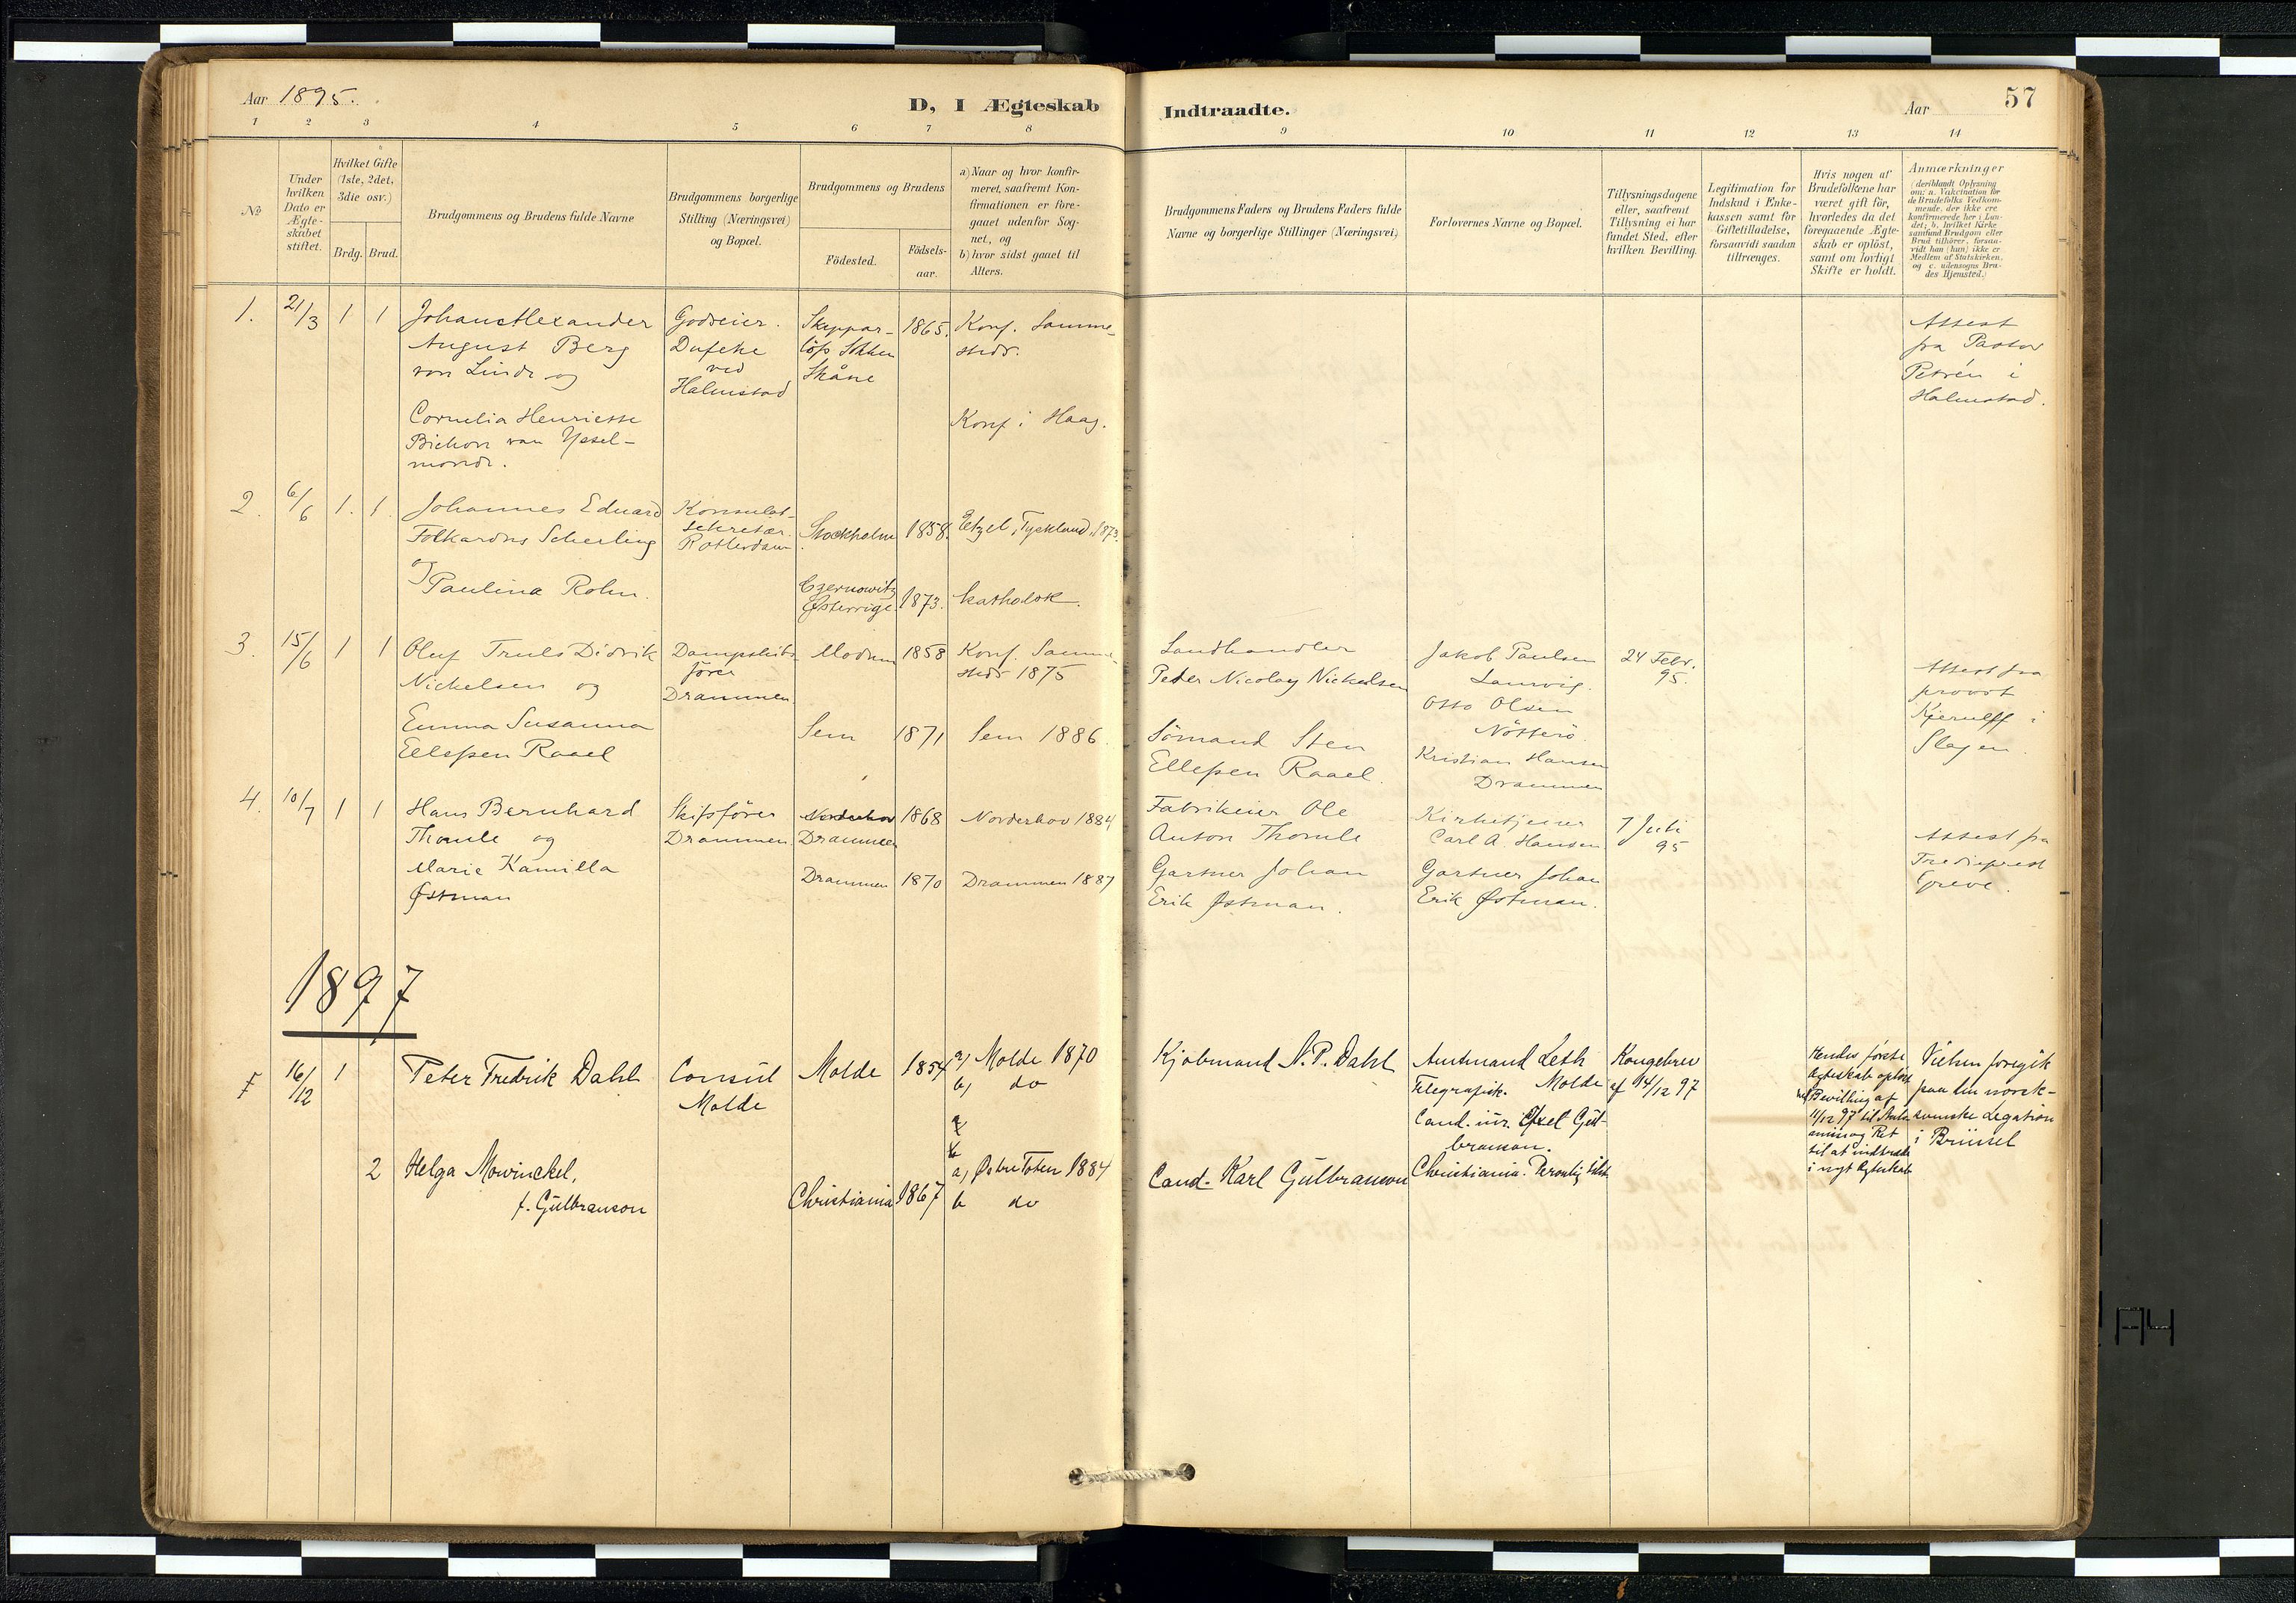 Aar 1895.
D, I Ægteskab
Indtraadte.
Aar
57
1 2 3 4 5 6 7 8 9 10 11 12 13 14
No
Under hvilken Dato er Ægte-skabet stiftet.
Hvilket Gifte (1ste, 2det, 3die osv.)
Brdg. Brud.
Brudgommens og Brudens fulde Navne
Brudgommens borgerlige Stilling (Næringsvei) og Bopæl.
Brudgommens og Brudens
Födested.
Födsels-aar.
a) Naar og hvor konfir-
meret, saafremt Kon-
firmationen er fore-
gaaet udenfor Sog-
net, og
b) hvor sidst gaaet til
Alters.
Brudgommens Faders og Brudens Faders fulde
Navne og borgerlige Stillinger (Næringsvei)
Forlovernes Navne og Bopæl.
Tillysningsdagene
eller, saafremt
Tillysning ei har
fundet Sted, efter
hvilken Bevilling.
Legitimation for
Indskud i Enke-
kassen samt for
Giftetilladelse,
forsaavidt saadan
tiltrænges.
Hvis nogen af
Brudefolkene har
været gift för,
hvorledes da det
foregaaende Ægte-
skab er oplöst,
samt om lovligt
Skifte er holdt.
Anmærkninger
(deriblandt Oplysning
om: a. Vakcination for
de Brudefolks Vedkom-
mende, der ikke ere
konfirmerede her i Lan-
det; b. hvilket Kirke
samfund Brudgom eller
Brud tilhörer, forsaa-
vidt han (hun) ikke er
Medlem af Statskirken,
og c. udensogns Bru-
des Hjemsted.)
1. 21/3 1 1
Johan Alexander
August Berg
von Linde og
Cornelia Henriette
Bichon van Yssel-
monde.
Godseier.
Dufeke
ved
Halmstad
Skeppar-
löfs Sokken
Skåne
1865.
Konf. Samme-
steds.
Konf. i Haag.
Attest
fra Pastor
Petrén i
Halmstad.
2. 6/6 1. 1.
Johannes Eduard
Folkardus Scherling
og
Paulina Rohn.
Konsulat-
sekretær.
Rotterdam
Stockholm 1858.
Etzel, Tyskland, 1873.
Czernowitz
Østerrige. 1873. katholsk.
3. 15/6 1 1
Oluf Truls Didrik
Nickelsen og
Emma Susanna
Ellefsen Raael
Dampskibs
förer
Drammen
Modum 1858
Konf. Samme-
steds 1875
Sem 1871 Sem 1886.
Landhandler
Peter Nicolay Nickelsen
Sömand Sten
Ellefsen Raael.
Jakob Paulsen
Laurvig.
Otto Olsen
Nötterö.
Kristian Hansen
Drammen
24 Febr.
95.
Attest fra
provst
Kjerulff i
Slagen.
4. 10/7 1 1
Hans Bernhard
Thomle og
Marie Kamilla
Østman
Skibsförer
Drammen
Norderhov
Drammen
1868 Norderhov 1884
Drammen 1870 Drammen 1887
Fabrikeier Ole
Anton Thomle
Gartner Johan
Erik Østman.
Kirketjener
Carl A. Hansen
Gartner Johan
Erik Østman.
7 Juli
95
Attest fra
Trediprest
Greve.
1897
16/12 1
Peter Fredrik Dahl
Consul
Molde
Molde 1854
a, Molde 1870
b, do
Kjöbmand N. P. Dahl
Amtmand Leth
Molde
Telegrafist.
Cand. jur. Axel Gul-
branson.
Christiania.
Kongebrev
af 14/12 97
Hendes förste
Ægteskab oplöst
ved Bevilling af
11/12 97
til at indtræde
i nyt Ægteskab
Vielsen foregik
paa den norsk-
svenske Legation
i Brüssel
2 Helga Mowinckel,
f. Gulbranson
Christiania 1867
a, Østre Toten 1884
b do
Cand. Karl Gulbranson